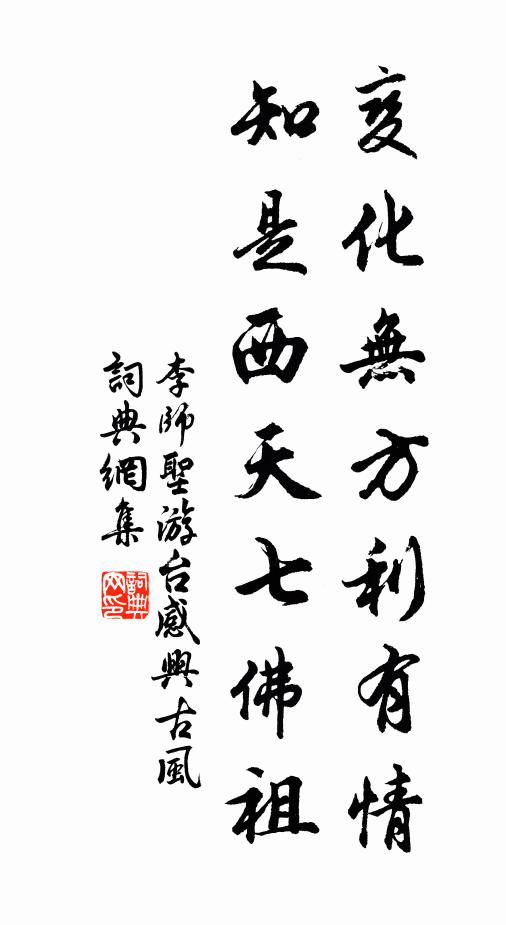 變化無方利有情
知是西天七佛祖
李師聖游台感興古風
詞典網集
詞典网印